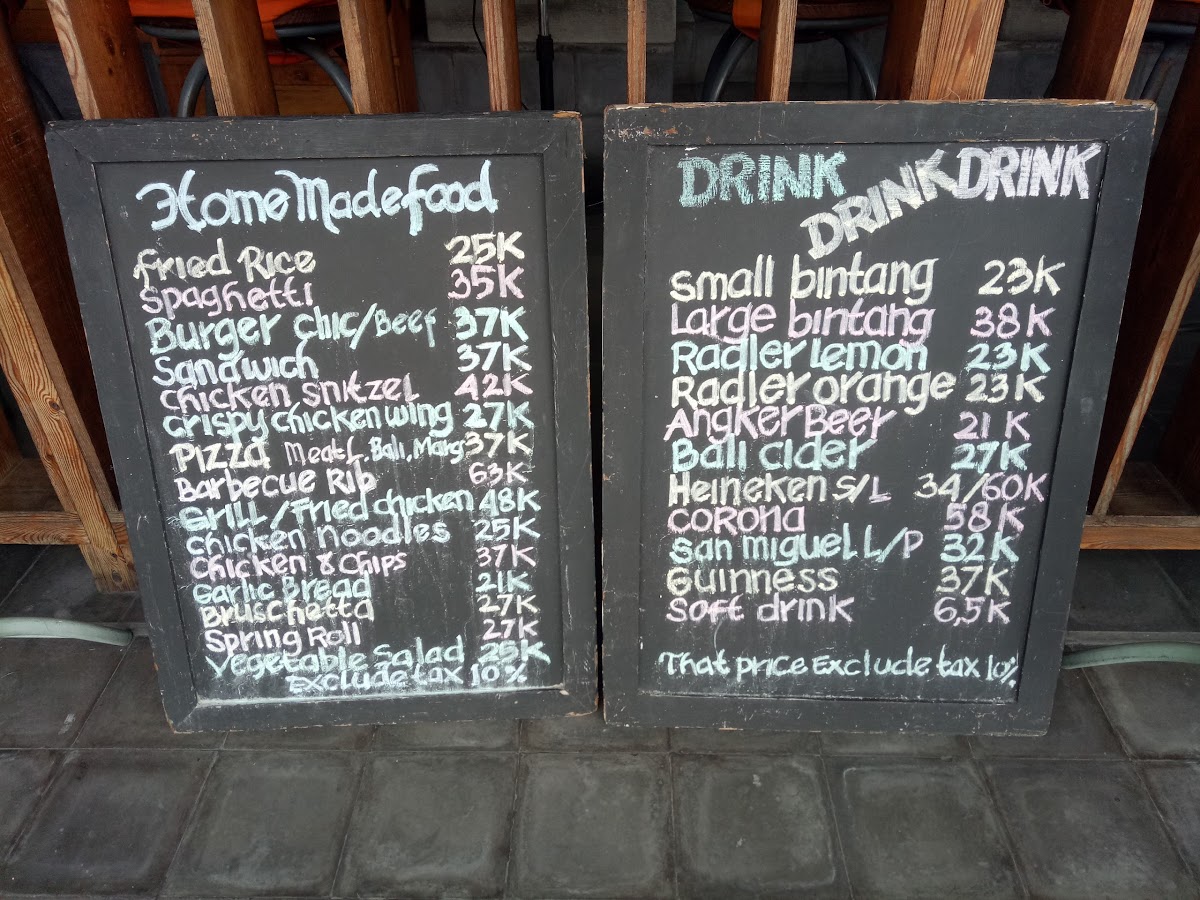 Home Made food
fried Rice 25K
Spaghetti 35K
Burger chic/Beef 37K
Sandwich 37K
chicken snitzel 42K
crispy chicken wing 27K
Pizza Meat L, Bali, Marg 37K
Barbecue Rib 63K
Grill/Fried chicken 48K
chicken noodles 25K
chicken & chips 37K
Garlic Bread 21K
Bruschetta 27K
Spring Roll 27K
Vegetable Salad 25K
Exclude tax 10%
DRINK DRINK DRINK
small bintang 23K
Large bintang 38K
Radler lemon 23K
Radler orange 23K
Angker Beer 21K
Bali cider 27K
Heineken S/L 34/60K
corona 58K
san miguel L/P 32K
Guinness 37K
Soft drink 6,5K
That price Exclude tax 10%